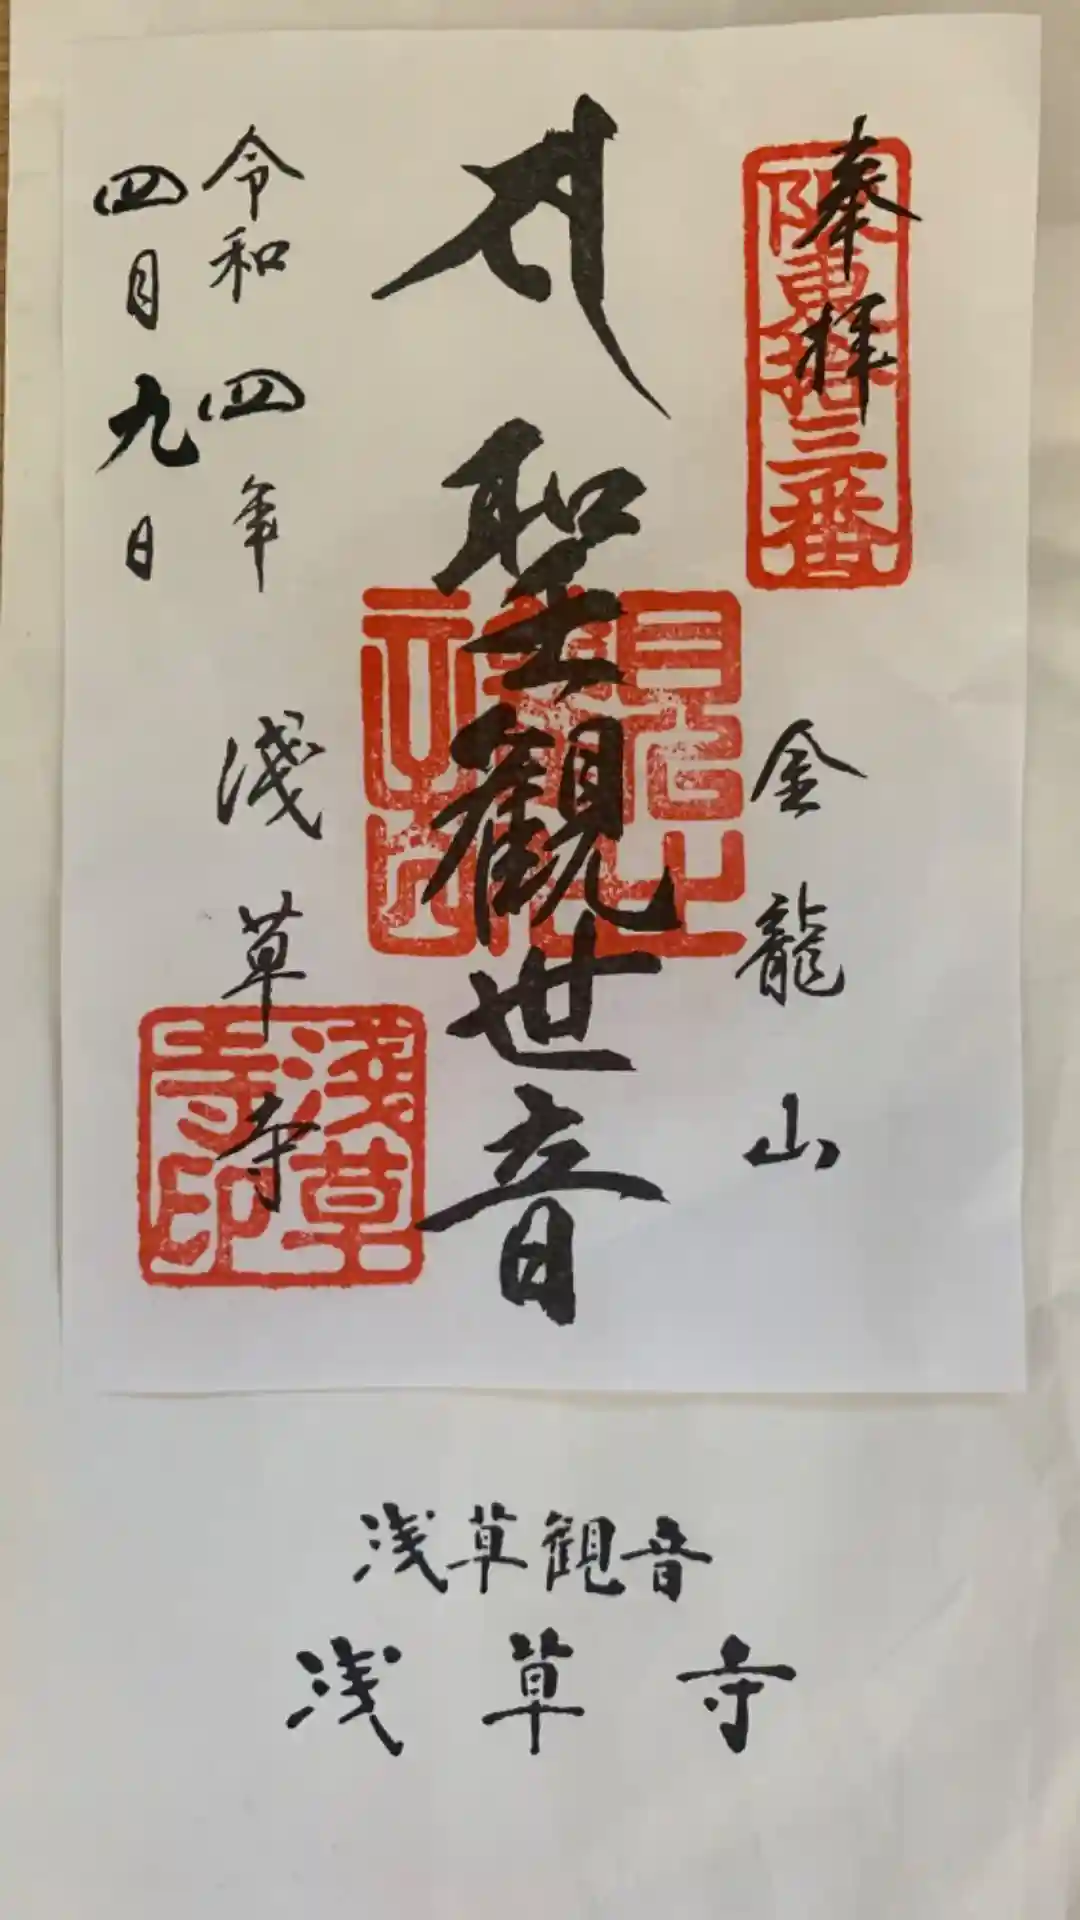 奉拝
阪東拾三番
金龍山
聖観世音
浅草寺
浅草寺印
令和四年
四月九日
浅草観音
浅草寺